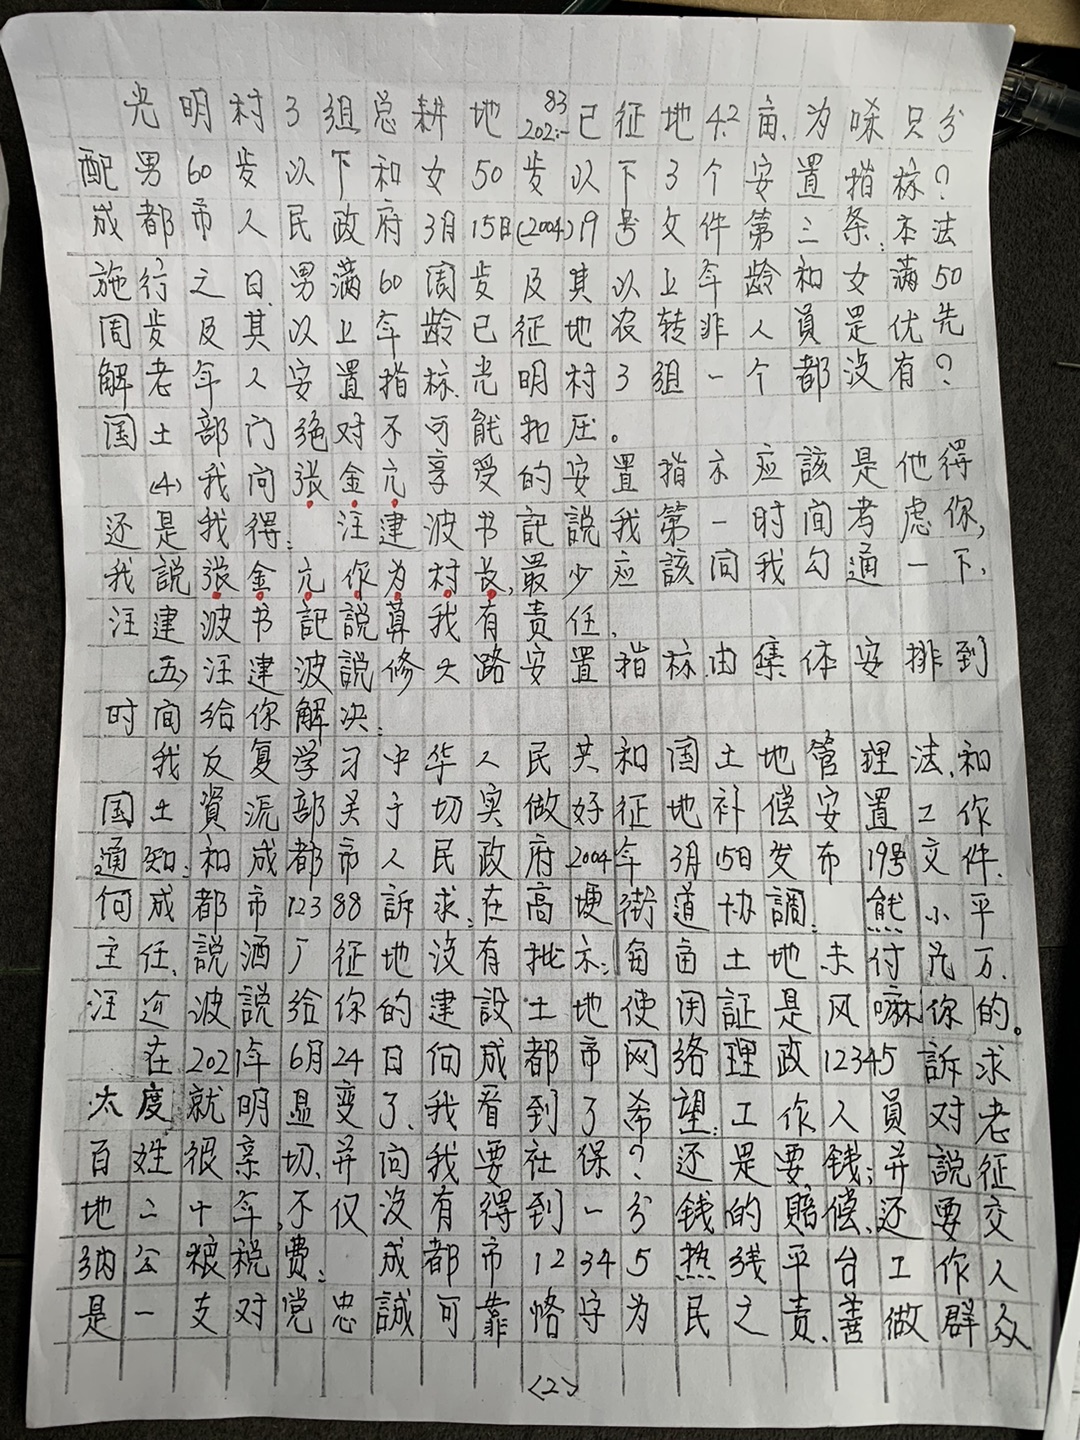 光明村3组总耕地202.83已征地42亩、为啋只分
配男60岁以下和女50岁以下3个安置指标?
成都市人民政府3月15日(2004)19号文件第三条:本法
施行之日、男满60周岁及其以上年龄和女满50
周岁及其以上年龄已征地农转非人員是优先
解老年人安置指标、光明村3组一个都没有?
国土部门绝对不可能扣压。
(4)我问张金亢享受的安置指示应該是他得
还是我得: 汪建波书記説我第一时间考虑你,
我説张金亢作为村长,最少应該间我勾通一下、
汪建波书記説算我有责任、
(五)汪建波説修大路安置指标由集体安排到
时间给你解决:
我反复学习中华人民共和国土地管理法、和
国土資沅部关于切实做好征地补偿安置工作
通知:和成都市人民政府2004年3月15日发布19号文件、
向成都市12388訴求:在高埂街道协調: 熊小平
主任、説酒厂征地沒有批示:每亩土地未付几万、
汪迠波説给你的建設土地使用証是风嘛你的。
在2021年6月24日向成都市网络理政12345訴求
太度就明显变了、我看到了希望:工作人員对老
百姓很亲切、并问我要社保?还是要钱:并説征
地二十年,不仅沒有得到一分钱的賠偿、还要交
纳公粮税费: 成都市12345热线平台工作人
是一支对党忠誠可靠恪守为民之责、善做群众
<2>